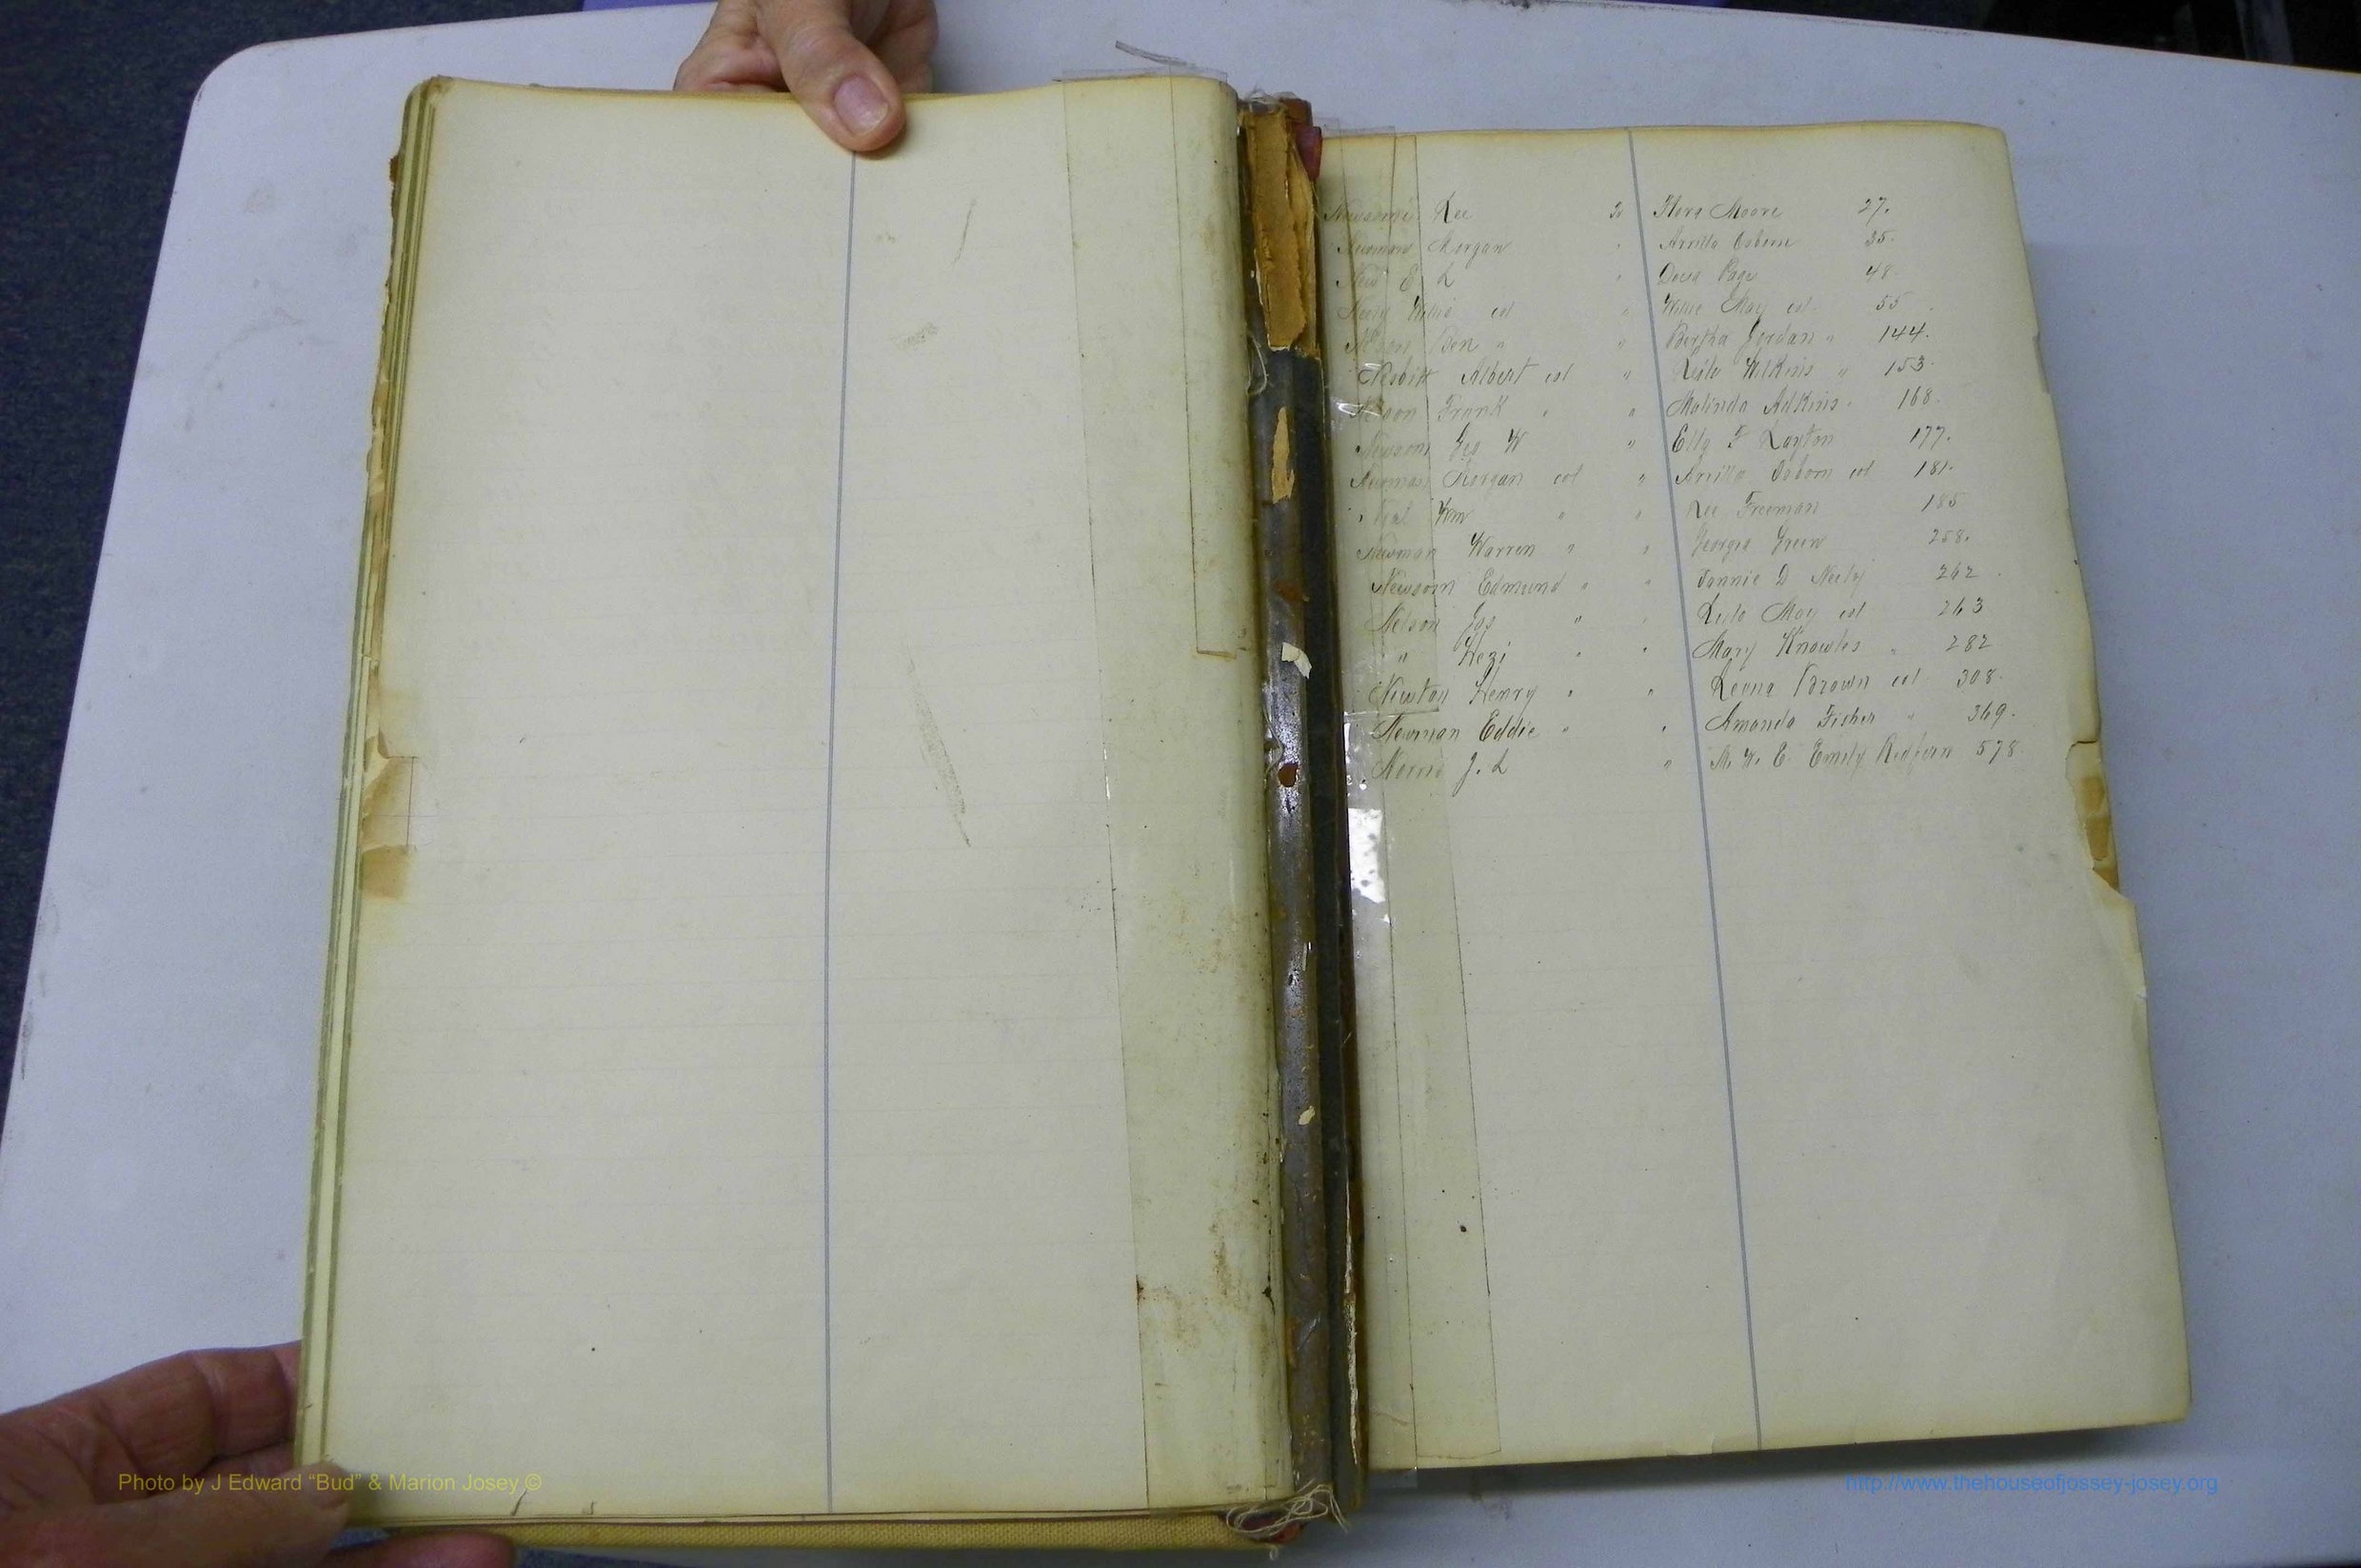 Newsome Lee to Flora Moore 27.
Newman Morgan " Arrilla Osborn 35.
New E L " Dora Page 48.
Neely Willis col " Willie May col. 55
Nelson Ben " " Bertha Jordan " 144.
Nesbitt Albert col " Leila Wilkins " 153.
Nelson Frank " " Malinda Adkins. 168.
Newsom Geo W " Ella F Layton 177.
Newman Morgan col " Arrilla Osborn col 181.
Neal Wm " " Lee Freeman 185
Newman Warren " " Georgia Green 258.
Newsom Edmund " " Fannie D Neely 262
Nelson Jas " " Lula May col 263
" Hezi " " Mary Knowles " 282
Newton Henry " " Leona Brown col 308.
Newman Eddie " " Amanda Fisher " 369.
Norris J. L " Emily 578
Photo by J Edward “Bud” & Marion Josey ©
http://www.thehouseofjossey-josey.org